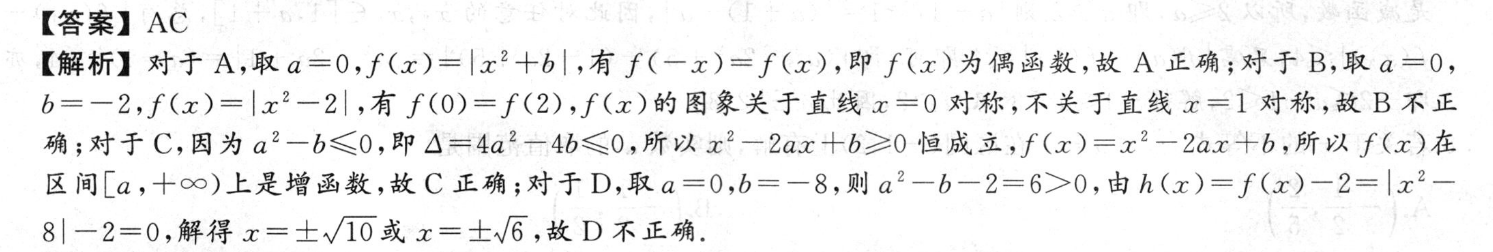 【答案】AC
【解析】对于 A,取 a=0,f(x)=|x²+b|,有 f(-x)=f(x),即 f(x)为偶函数,故 A 正确;对于 B,取 a=0,
b=-2,f(x)=|x²-2|,有 f(0)=f(2),f(x)的图象关于直线 x=0 对称,不关于直线 x=1 对称,故 B 不正
确;对于 C,因为 a²-b≤0,即 Δ=4a²-4b≤0,所以 x²-2ax+b≥0 恒成立,f(x)=x²-2ax+b,所以 f(x)在
区间[a,+∞)上是增函数,故 C 正确;对于 D,取 a=0,b=-8,则 a²-b-2=6>0,由 h(x)=f(x)-2=|x²-
8|-2=0,解得 x=±√10或 x=±√6,故 D 不正确.